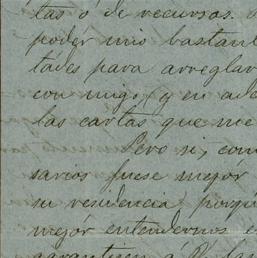 tas o de recursos.
poder mio bastant
tades para arreglar
conmigo (y en ade
las cartas que me
Pero si, com
sarios fuese mejor
su residencia porqu
mejor entendernos e
garanticen á V. las